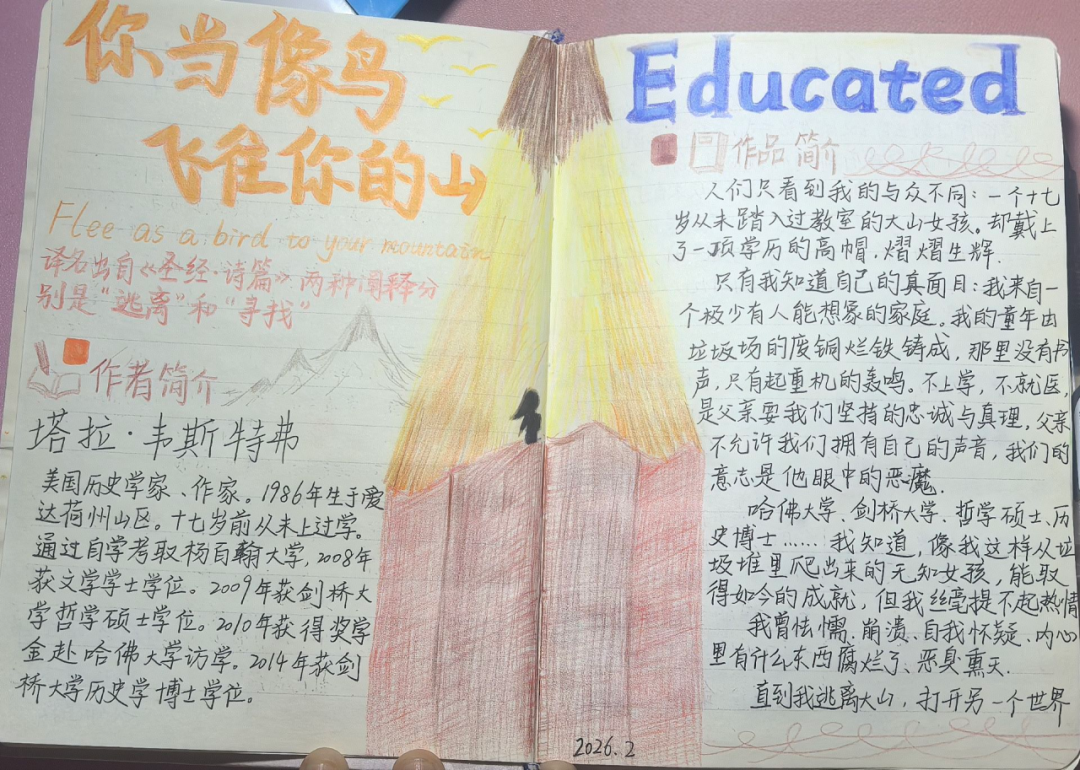 你当像鸟
飞往你的山
Flee as a bird to your mountain
译名出自《圣经·诗篇》两种阐释分
别是“逃离”和“寻找”
作者简介
塔拉·韦斯特弗
美国历史学家、作家。1986年生于爱
达荷州山区。十七岁前从未上过学。
通过自学考取杨百翰大学,2008年
获文学学士学位。2009年获剑桥大
学哲学硕士学位。2010年获得奖学
金赴哈佛大学访学。2014年获剑
桥大学历史学博士学位。
Educated
作品简介
人们只看到我的与众不同:一个十七
岁从未踏入过教室的大山女孩。却戴上
了一顶学历的高帽,熠熠生辉.
只有我知道自己的真面目:我来自一
个极少有人能想象的家庭。我的童年由
垃圾场的废铜烂铁铸成,那里没有书
声,只有起重机的轰鸣。不上学,不就医,
是父亲要我们坚持的忠诚与真理,父亲
不允许我们拥有自己的声音,我们的
意志是他眼中的恶魔.
哈佛大学、剑桥大学、哲学硕士、历
史博士……我知道,像我这样从垃
圾堆里爬出来的无知女孩,能取
得如今的成就,但我丝毫提不起热情
我曾怯懦、崩溃、自我怀疑、内心
里有什么东西腐烂了、恶臭熏天.
直到我逃离大山,打开另一个世界
2026.2